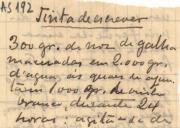 AS 192
Tinta de escrever
300 gr. de noz de galha
maceradas em 2.000 gr.
d'agua, as quais se ajun-
tam 1.000 gr. de vinho
branco, durante 24
horas; agita-se de